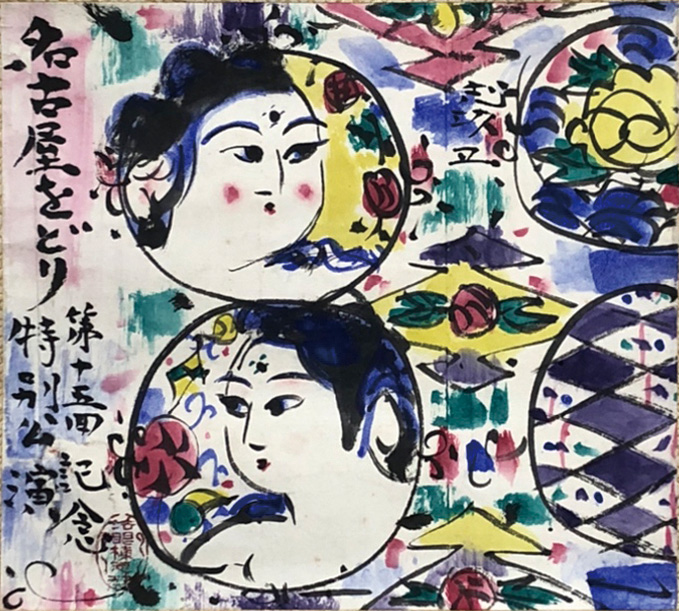 名古屋をどり
第十五回記念
特別公演
志功